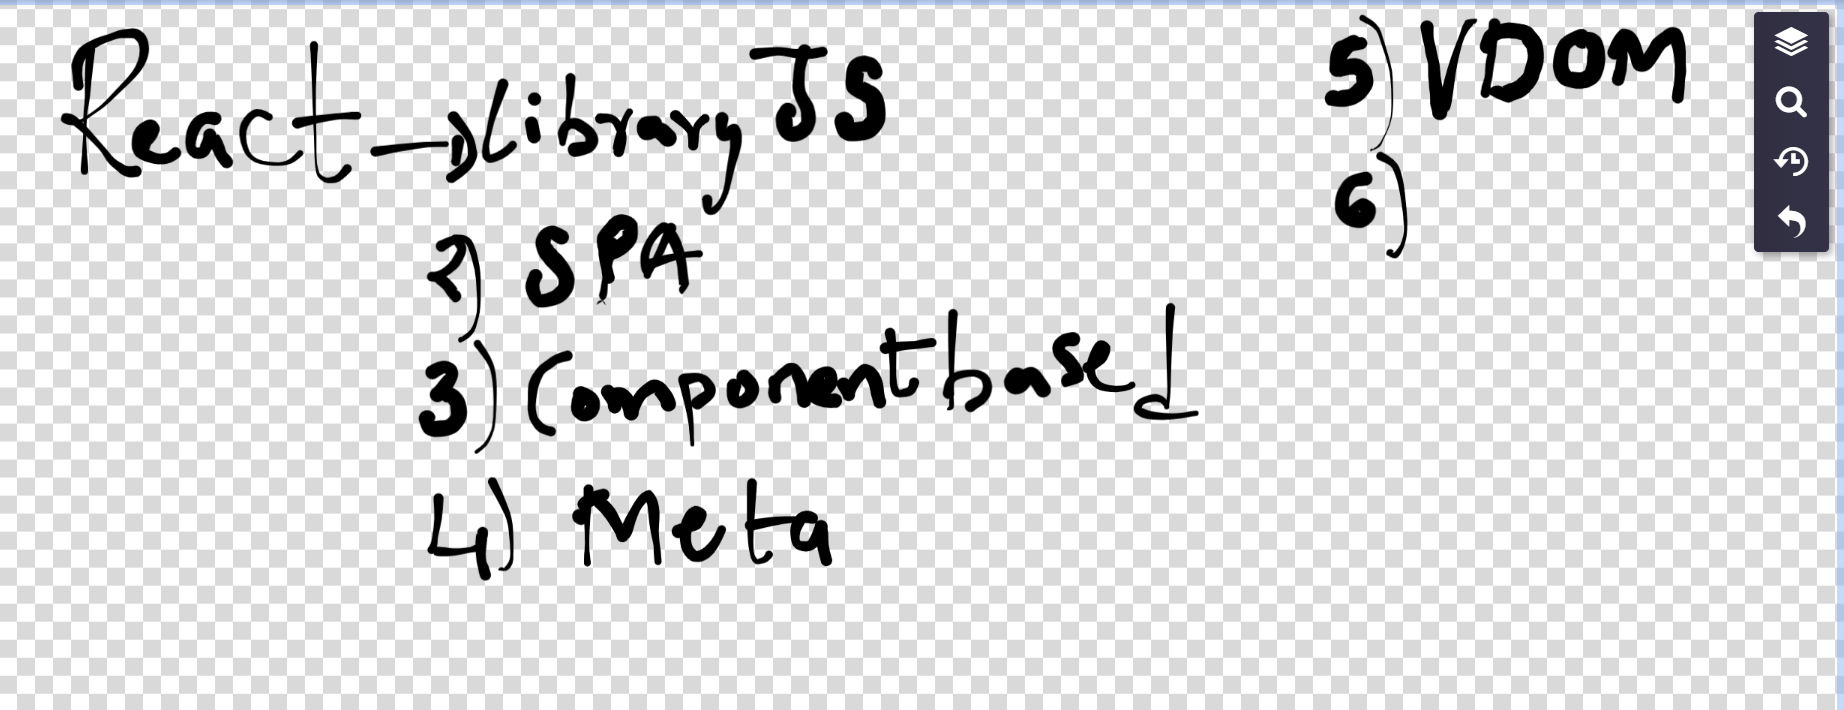 React → library JS
2) SPA
3) Component based
4) Meta
5) VDOM
6)